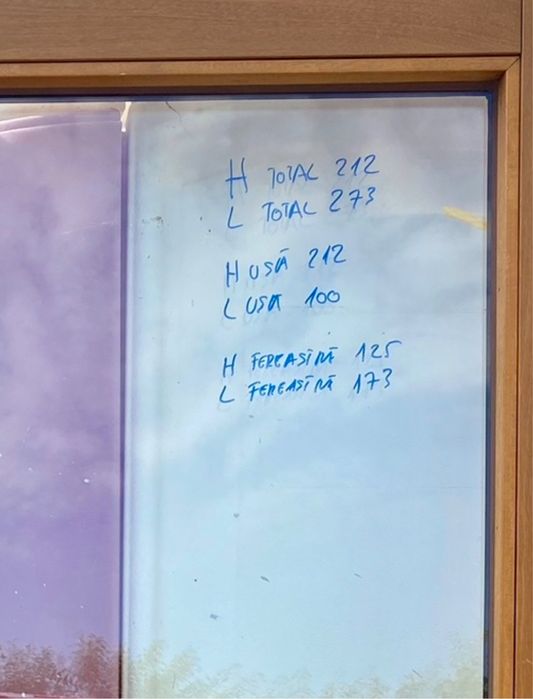 H TOTAL 212
L TOTAL 273
H USĂ 212
L USĂ 100
H FEREASTRĂ 125
L FEREASTRĂ 173